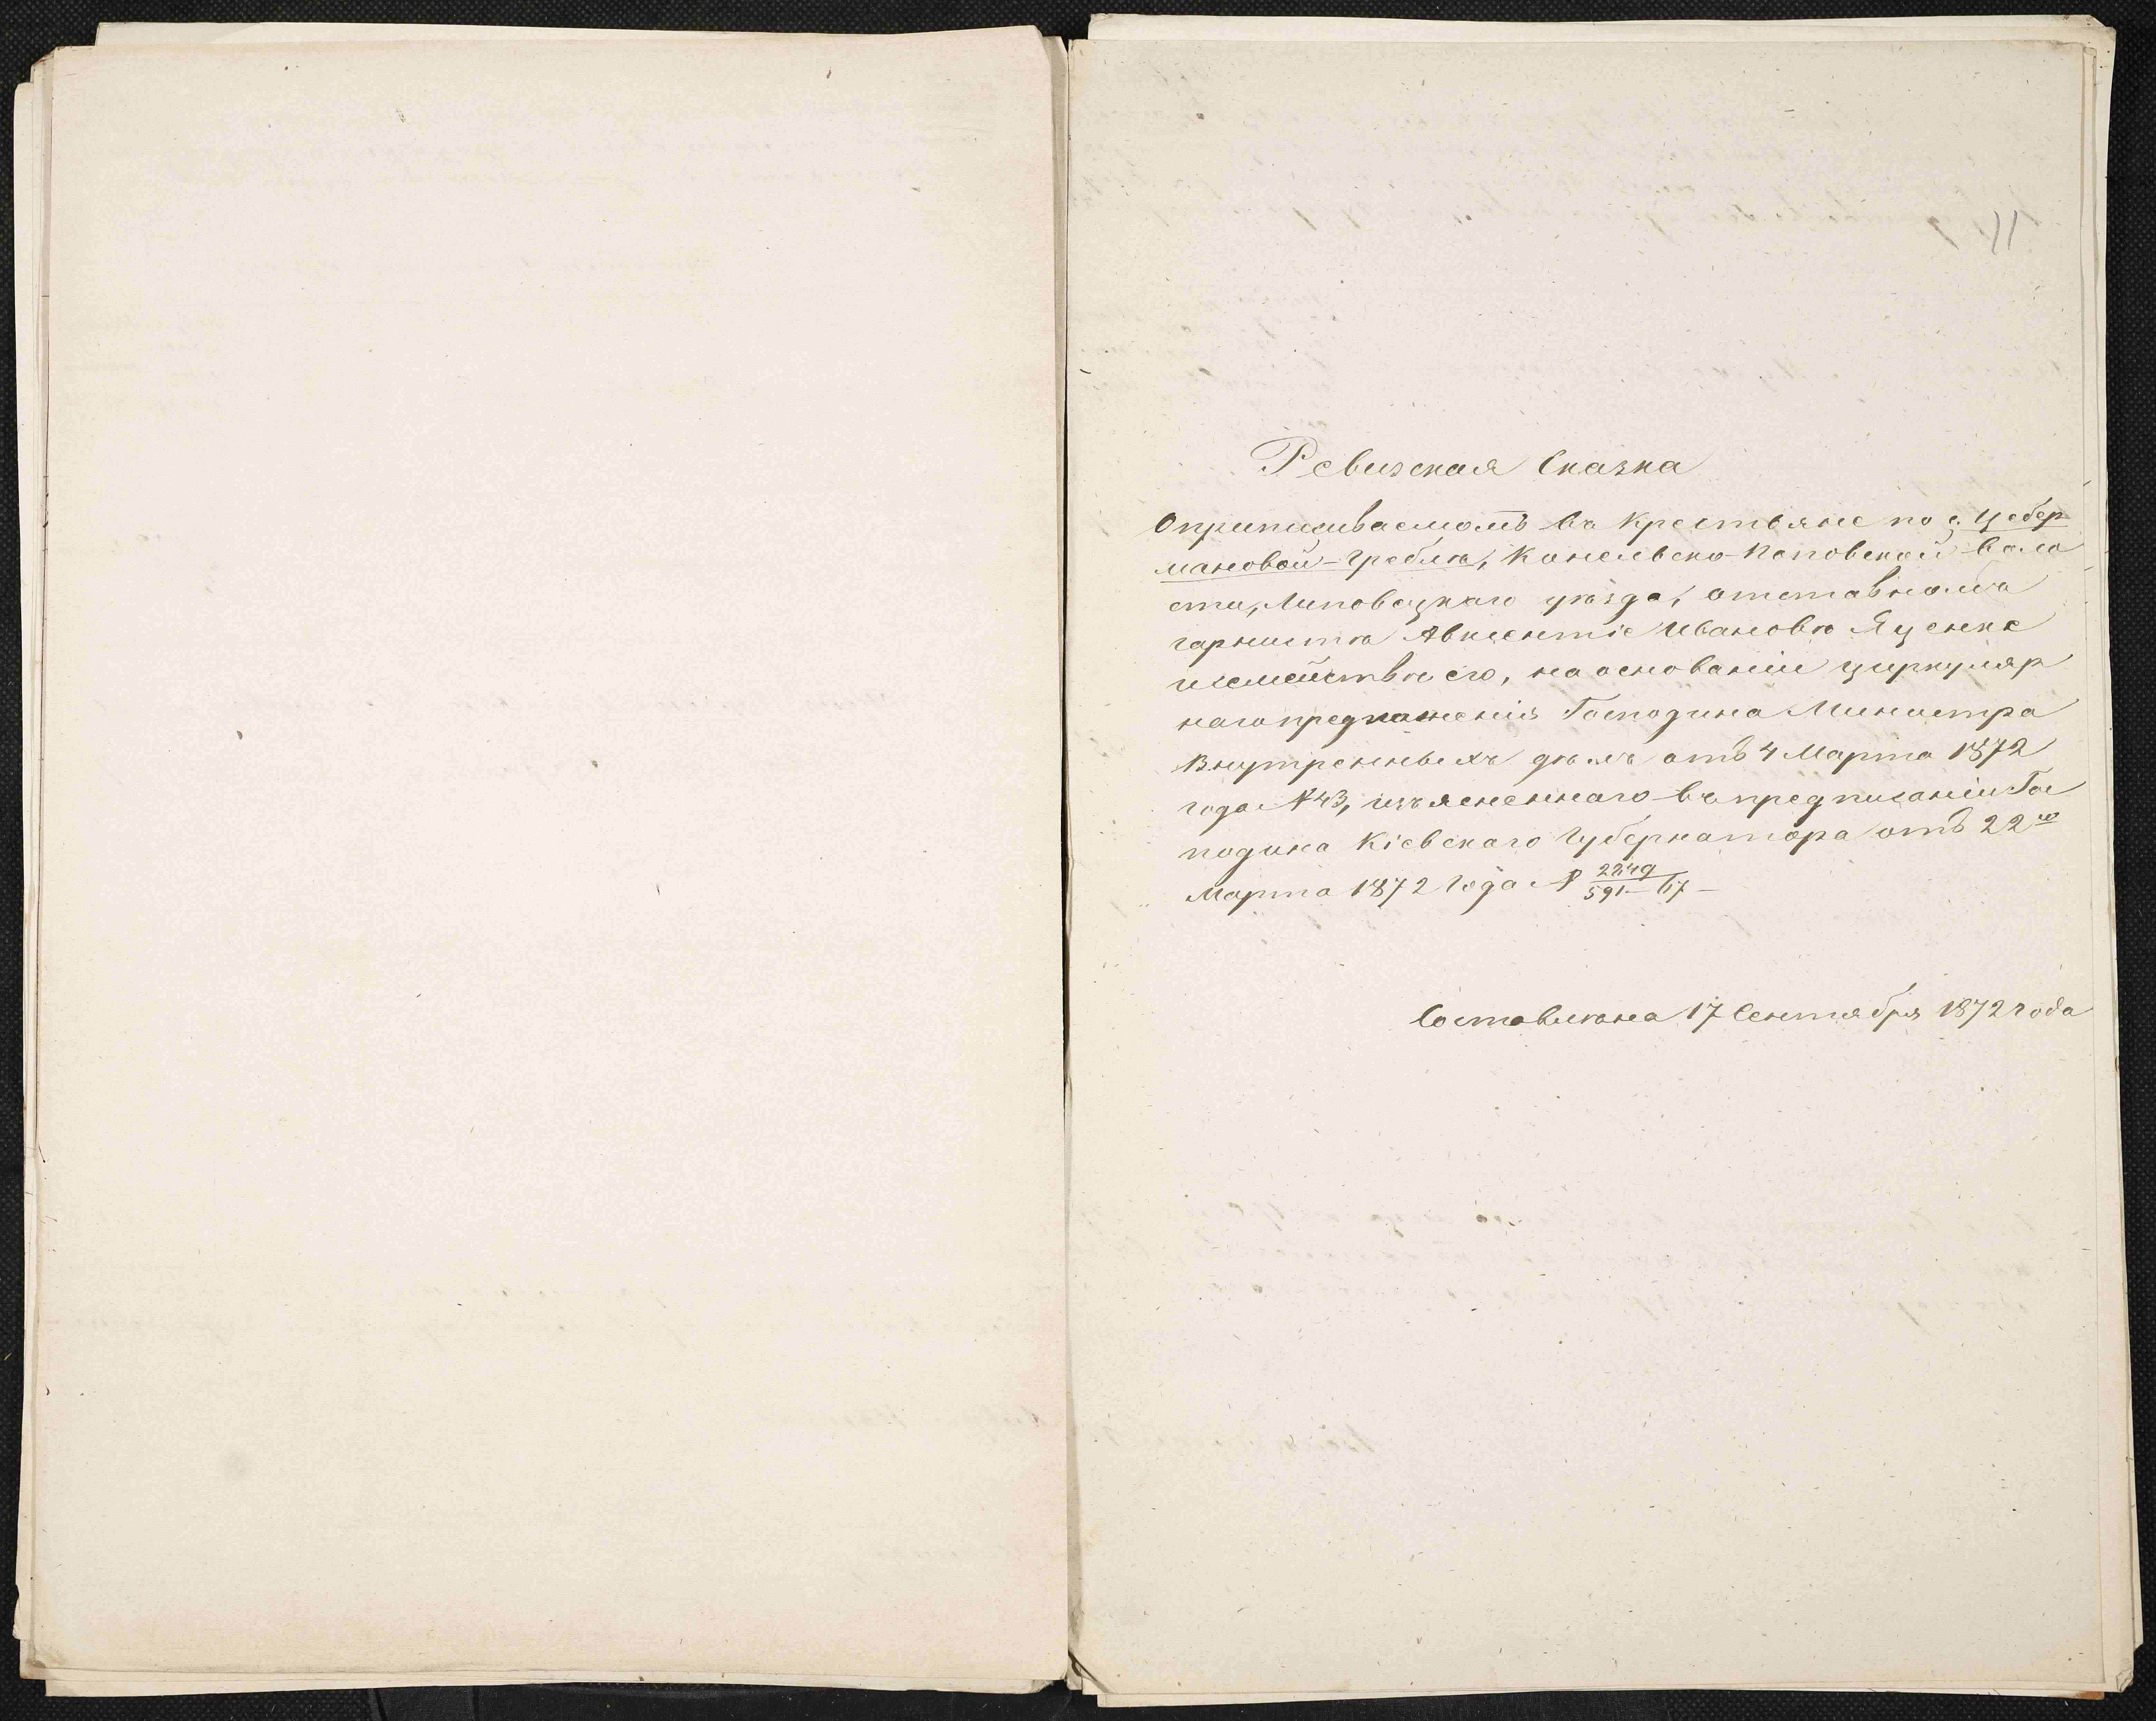 11
Ревизская Сказка
О приписываемомъ въ Крестьяне по с. Цебер
мановой-Греблѣ, Конельско-Поповской Воло
сти, Липовецкаго уѣзда, отставномъ
горнистѣ Авксентіе Ивановѣ Яценкѣ
и семействѣ его, на основаніи циркуляр
наго предложенія Господина Министра
Внутренныхъ дѣлъ отъ 4 Марта 1872
года № 43, изъясненнаго въ предписаніи Гос
подина Кіевскаго Губернатора отъ 22го
Марта 1872 года №
Составлена 17 Сентября 1872 года